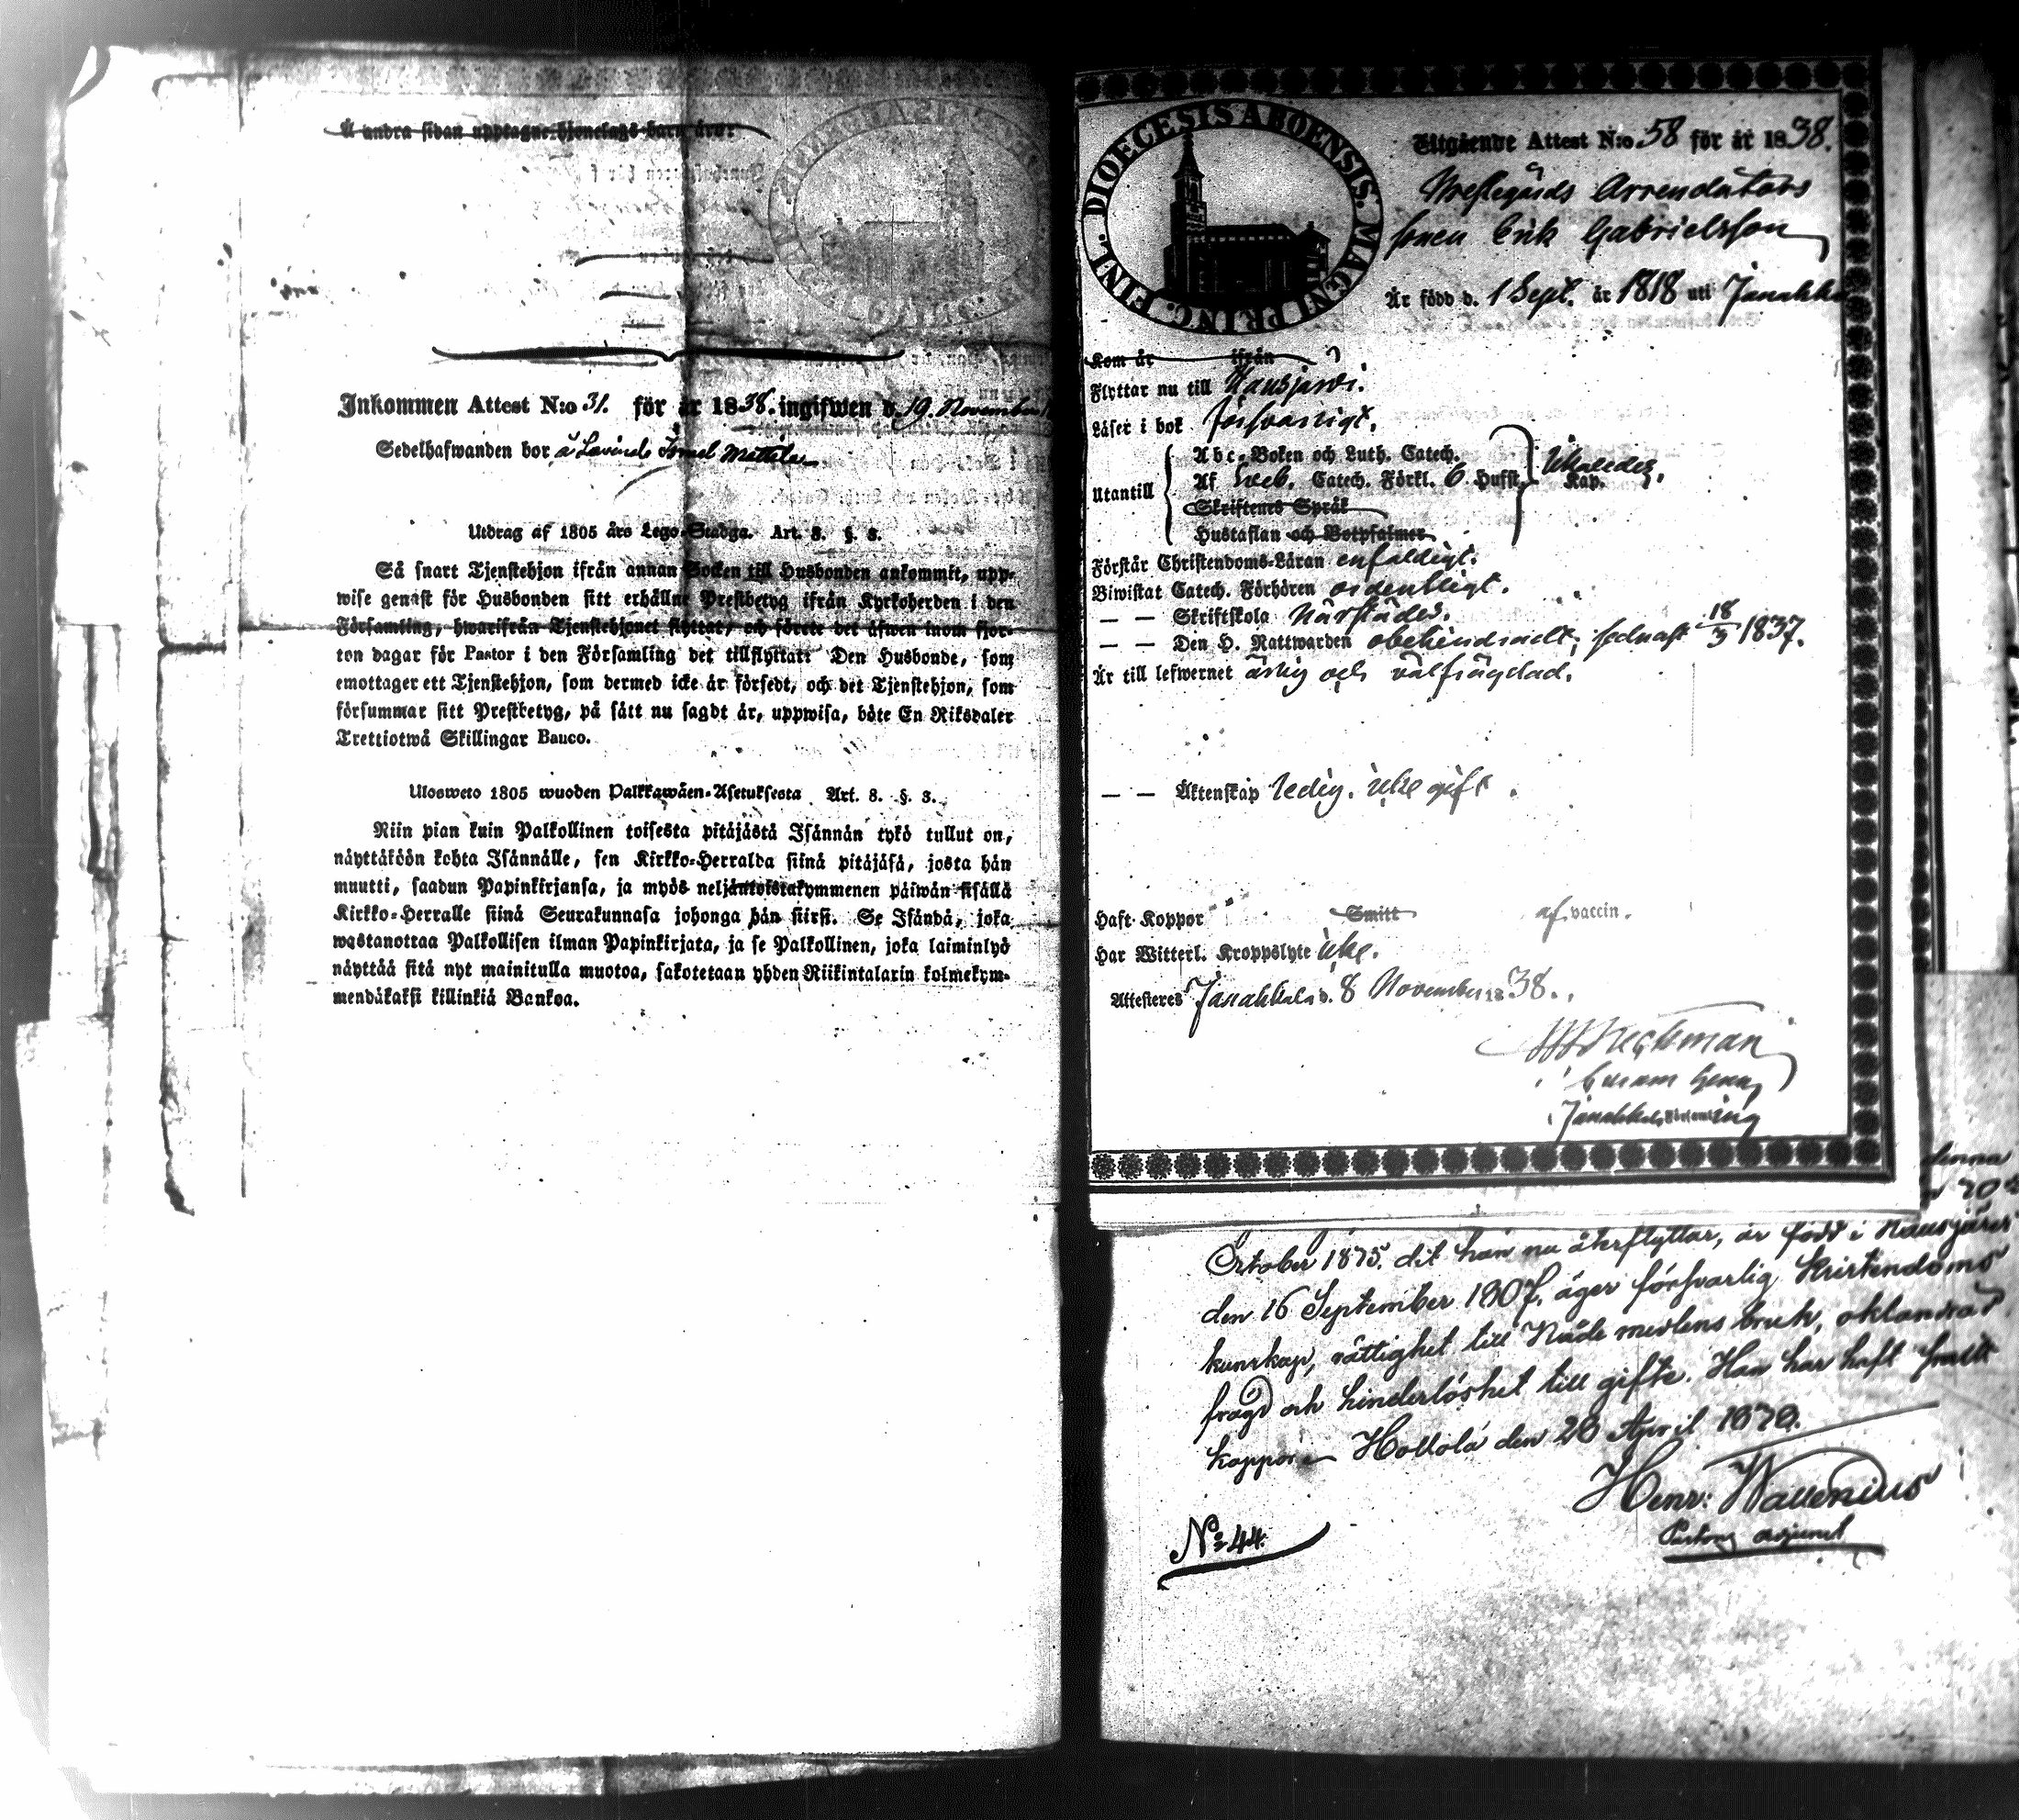 Å andra sidan upptagne hjonelags barn äro:
Inkommen Attest N:o 31. för år 1838. ingifwen d. 19. November
Sedelhafwanden bor å
Utdrag af 1805 års Lego-Stadga. Art. 8. §. 8.
Så snart Tjenstehjon ifrån annan Socken till Husbonden ankommit, upp-
wise genast för Husbonden sitt erhållne Prestbetyg ifrån Kyrkoherden i den
Församling, hwarifrån Tjenstehjonet flyttat, och förete det äfwen inom fjor-
ton dagar för Pastor i den Församling det tillflyttat: Den Husbonde, som
emottager ett Tjenstehjon, som dermed icke är försedt, och det Tjenstehjon, som
försummar sitt Prestbetyg, på sätt nu sagdt är, uppwisa, böte En Riksdaler
Trettiotwå Skillingar Banco.
Ulosweto 1805 wuoden Palkkawäen-Asetuksesta Art. 8. §. 8.
Niin pian kuin Palkollinen toisesta pitäjästä Isännän tykö tullut on,
näyttäköön kohta Isännälle, sen Kirkko-Herralda siinä pitäjäsä, josta hän
muutti, saadun Papinkirjansa, ja myös neljäntoistakymmenen päiwän sisällä
Kirkko-Herralle siinä Seurakunnasa johonga hän siirsi. Se Isändä, joka
wastanottaa Palkollisen ilman Papinkirjata, ja se Palkollinen, joka laiminlyö
näyttää sitä nyt mainitulla muotoa, sakotetaan yhden Riikintalarin kolmekym-
mendäkaksi killinkiä Bankoa.
FINL. DIOECESIS ABOENSIS. MAGNI PRINC.
Utgående Attest N:o 58 för år 1838.
Prestegårds Arrendators
sonen Erik Gabrielsson
Är född d. 1 Sept. år 1818 uti Janakka
Kom år ifrån
Flyttar nu till Hausjärvi.
Läser i bok försvarligt.
Utantill
Abc-Boken och Luth. Catech.
Af Catech. Förkl. 6 Hufst. Kap.
Skriftenes Språk
Hustaflan och Botpsalmer
Förstår Christendoms-Läran enfaldigt.
Biwistat Catech. Förhören ordentligt.
— — Skriftskola härstädes.
— — Den H. Nattwarden obehindradt; sednast 18/3 1837.
Är till lefwernet ärlig och välfrägdad.
— — Äktenskap ledig. icke gift.
Haft Koppor Smitt af vaccin.
Har Witterl. Kroppslyte icke.
Attesteres Janakkala d. 8 November 1838.
denna
October 1875. dit han nu återflyttar, är född i Hausjärvi
den 16 September 1807. äger försvarlig kristendoms
kunskap, rättighet till Nådemedlens bruk, oklandrad
frägd och hinderlöshet till gifte. Han har haft
koppor. Hollola den 28 April 1878.
Henr: Wallenius
Pastors adjunct
No 44.